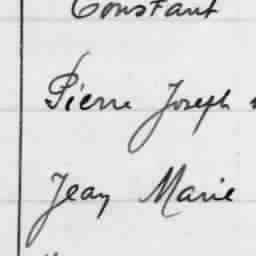 Constant
Pierre Joseph
Jean Marie